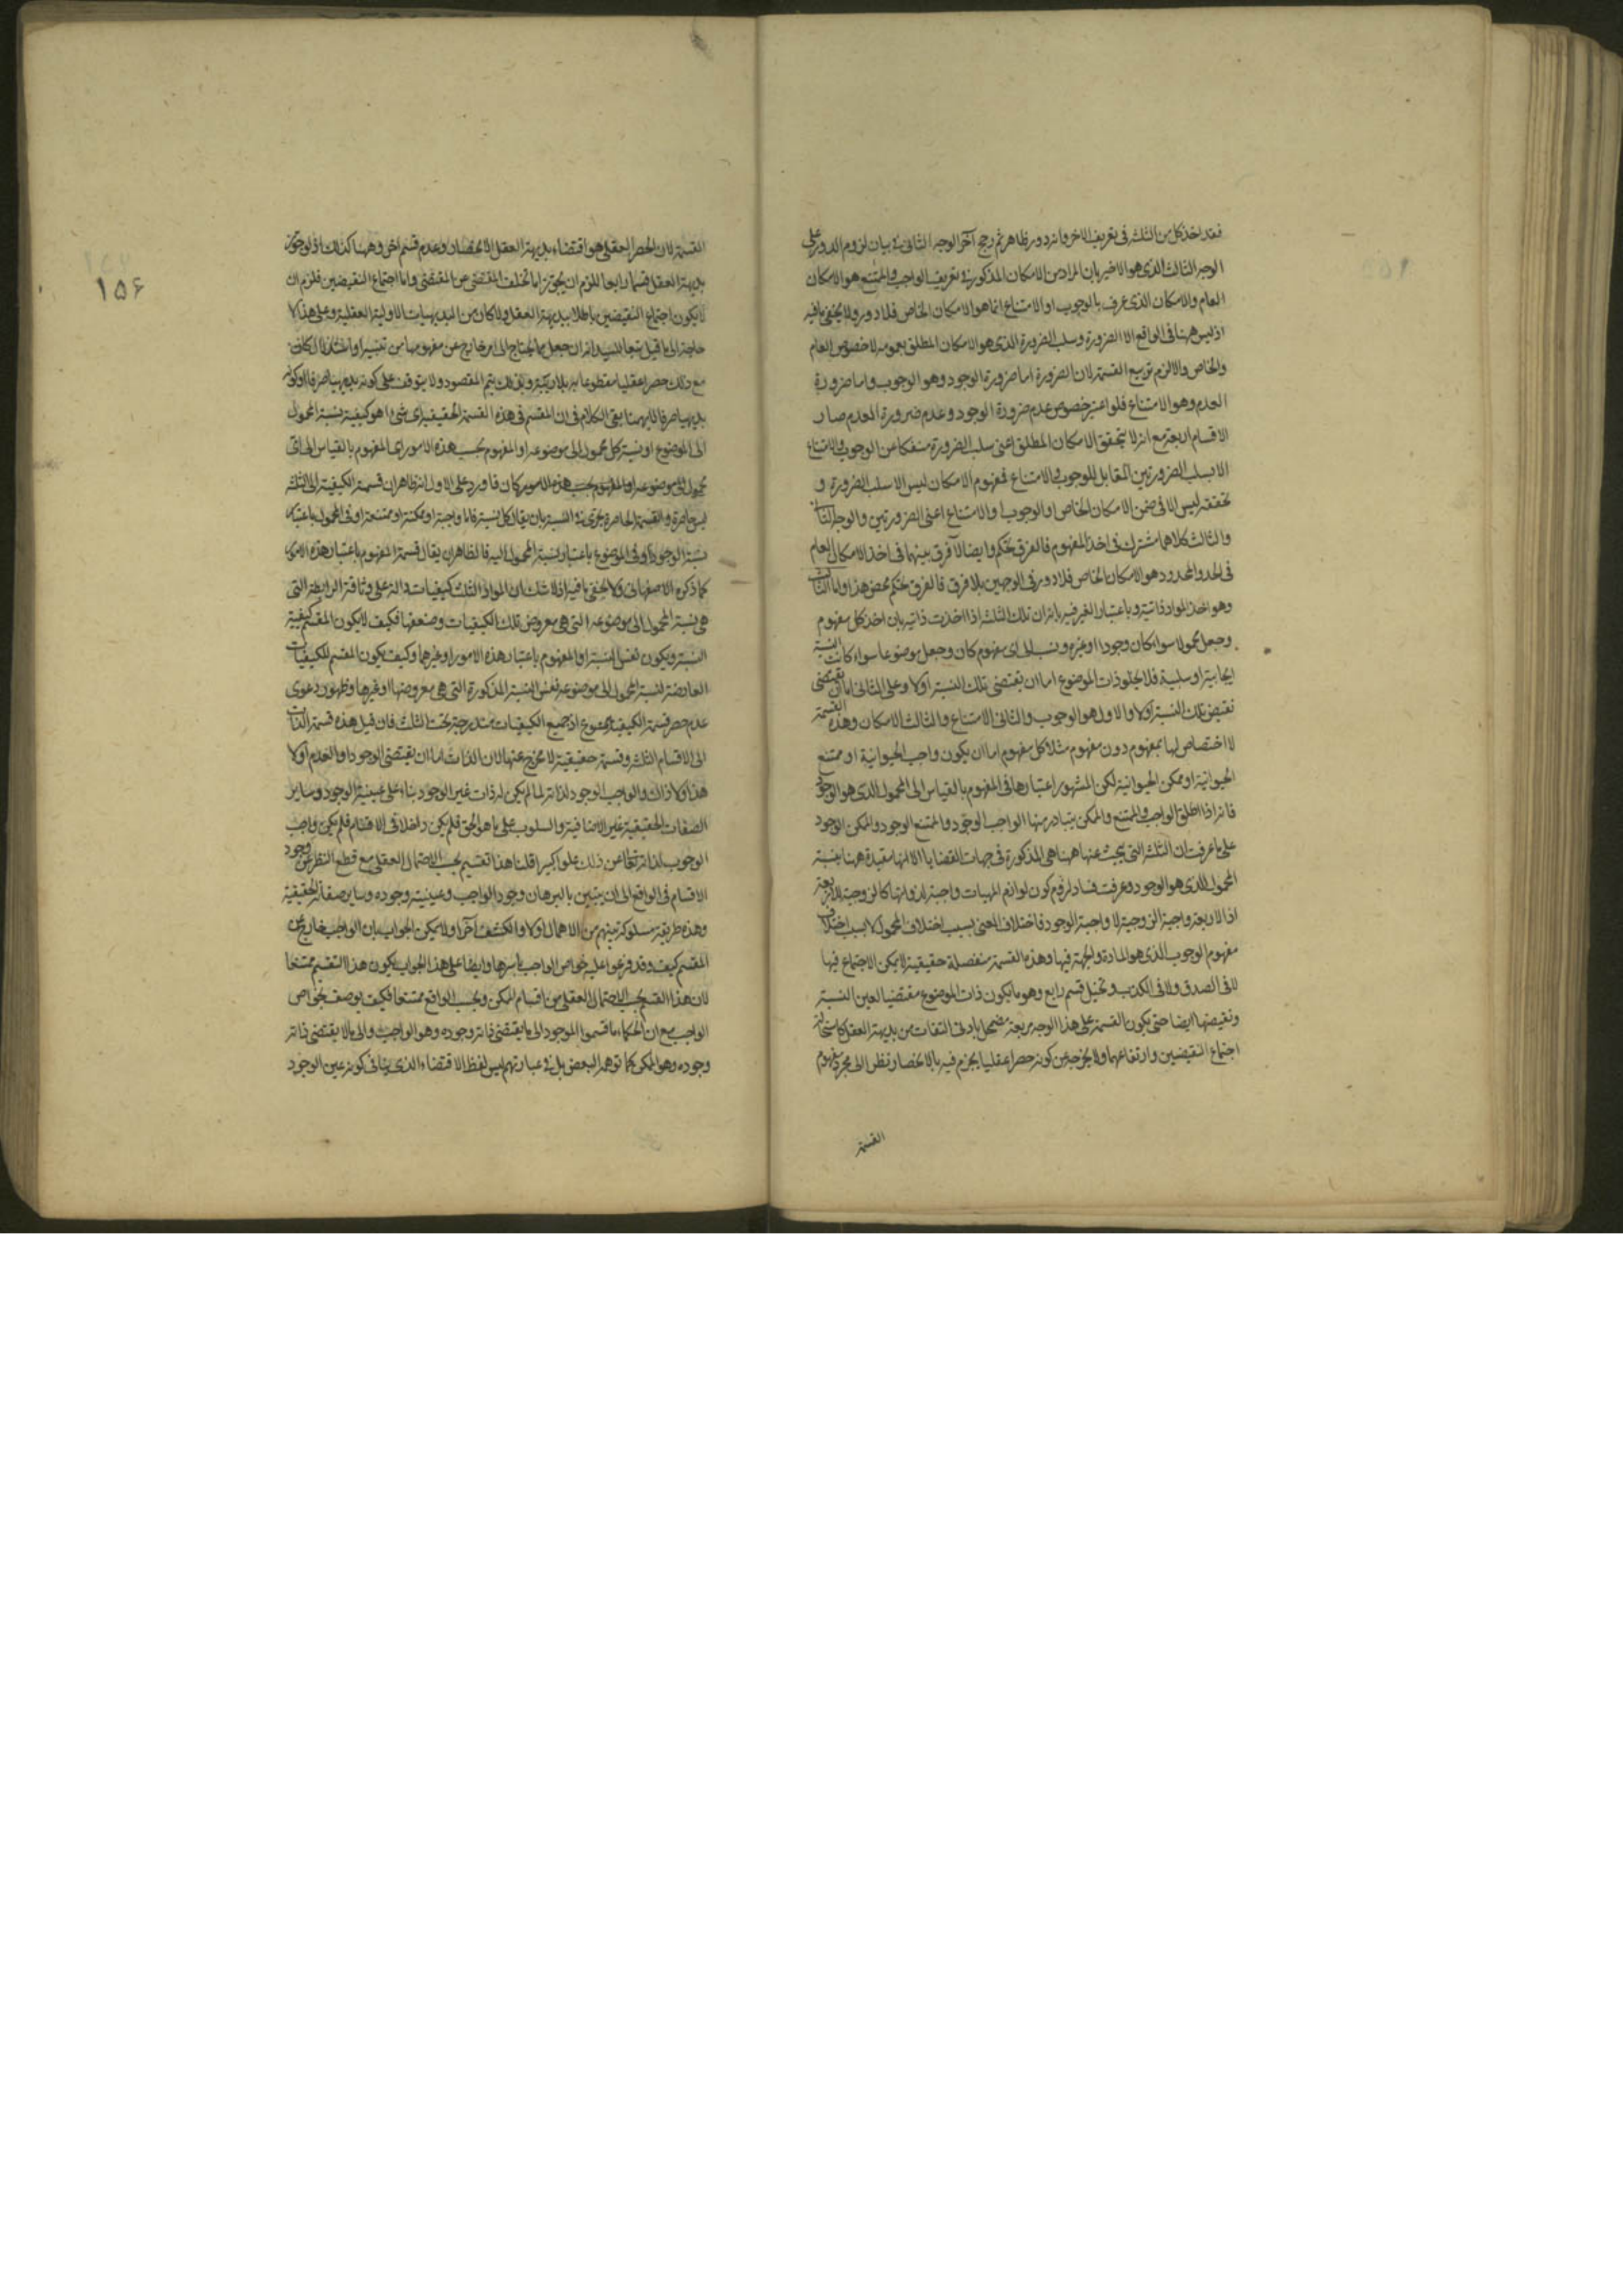 فقد اخذ كل من الثلثة فى تعريف الاخر وانه دور ظاهر ثم رجح آخر الوجه الثانى فى بيان لزوم الدور على
الوجه الثالث الذى هو الاخير بان المراد من الامكان المذكور فى تعريف الواجب والممتنع هو الامكان
العام والامكان الذى عرف بالوجوب او الامتناع انما هو الامكان الخاص فلا دور ولا يخفى ما فيه
اذ ليس ههنا فى الواقع الا الضرورة وسلب الضرورة الذى هو الامكان المطلق بعمومه لا خصوص العام
والخاص والا لزم تربيع القسمة لان الضرورة اما ضرورة الوجود وهو الوجوب واما ضرورة
العدم وهو الامتناع فلو اعتبر خصوص عدم ضرورة الوجود وعدم ضرورة العدم صار
الاقسام اربعة مع انه لا يتحقق الامكان المطلق اعنى سلب الضرورة منفكا عن الوجوب والامتناع
الا بسلب الضرورتين المقابل للوجوب والامتناع فمفهوم الامكان ليس الا سلب الضرورة و
تحققه ليس الا فى ضمن الامكان الخاص او الوجوب او الامتناع اعنى الضرورتين والوجه الثانى
والثالث كلاهما مشترك فى اخذ المفهوم فالفرق تحكم وايضا لا فرق بينهما فى اخذ الامكان العام
فى الحد والمحدود هو الامكان الخاص فلا دور فى الوجهين بلا فرق فالفرق تحكم محض هذا واما الثانى
وهو اخذ المواد ذاتية وباعتبار الغير فبيانه ان تلك الثلثة اذا اخذت ذاتية بان اخذ كل مفهوم
وجعل محمولا سواء كان وجودا او غيره ونسب الى اى مفهوم كان وجعل موضوعا سواء كانت النسبة
ايجابية او سلبية فلا يخلو ذات الموضوع اما ان تقتضى تلك النسبة اولا وعلى الثانى اما ان تقتضى
نقيض تلك النسبة اولا والاول هو الوجوب والثانى الامتناع والثالث الامكان وهذه القسمة
لا اختصاص لها بمفهوم دون مفهوم مثلا كل مفهوم اما ان يكون واجب الحيوانية او ممتنع
الحيوانية او ممكن الحيوانية لكن المشهور اعتبارها فى المفهوم بالقياس الى المحمول الذى هو الوجود
فانه اذا اطلق الواجب والممتنع والممكن يتبادر منها الواجب الوجود والممتنع الوجود والممكن الوجود
على ما عرفت ان الثلثة التى يبحث عنها ههنا هى المذكورة فى جهات القضايا الا انها مقيدة ههنا بنسبة
المحمول الذى هو الوجود وعرفت فساد لزوم كون لوازم المهيات واجبة لذواتها كالزوجية للاربعة
اذ الاربعة واجبة الزوجية لا واجبة الوجود فاختلاف المعنى بسبب اختلاف المحمول لا بسبب اختلاف
مفهوم الوجوب الذى هو المادة والجهة فيها وهذه القسمة منفصلة حقيقية لا يمكن الاجتماع فيها
لا فى الصدق ولا فى الكذب وتخيل قسم رابع وهو ما يكون ذات الموضوع مقتضيا لعين النسبة
ونقيضها ايضا حتى يكون القسمة على هذا الوجه مربعة مضمحل بادنى التفات من بديهة العقل كاستحالة
اجتماع النقيضين وارتفاعهما ولا يخرجه عن كونه حصرا عقليا يجزم فيه بالانحصار نظرا الى مجرد مفهوم
القسمة
۱۵۶
القسمة لان الحصر العقلى هو اقتضاء بديهة العقل الانحصار وعدم قسم اخر وههنا كذلك اذ لو جوز
بديهة العقل قسما رابعا للزم ان يجوز اما تخلف المقتضى عن المقتضى واما اجتماع النقيضين فلزم ان
لا يكون اجتماع النقيضين باطلا ببديهة العقل ولا كان من البديهيات الاولية العقلية وعلى هذا لا
حاجة الى ما قيل تبعا للسيد انه ان جعل مما يحتاج الى امر خارج عن مفهومها من تفسير او استدلال كان
مع ذلك حصرا عقليا مقطوعا به بلا ريبة وبذلك يتم المقصود ولا يتوقف على كونه بديهيا صرفا او كونه
بديهيا صرفا اليهما بقى الكلام فى ان المقسم فى هذه القسمة الحقيقية اى شىء اهو كيفية نسبة المحمول
الى الموضوع او نسبة كل محمول الى موضوعه او المفهوم بحسب هذه الامور اى المفهوم بالقياس الى اى
محمول الى موضوعه او المفهوم بحسب هذه الامور كان فاورد على الاول انه ظاهر ان قسمة الكيفية الى الثلثة
ليس حاصرة والقسمة الحاصرة يجرى فى النسبة بان يقال كل نسبة فاما واجبة او ممكنة او ممتنعة او فى المحمول باعتبار
نسبة الوجود او فى الموضوع باعتبار نسبة المحمول اليه فالظاهر ان يقال قسمة المفهوم باعتبار هذه الامور
كما ذكره الاصفهانى ولا يخفى ما فيه اذ لا شك ان المواد الثلث كيفيات دالة على وثاقة الرابطة التى
هى نسبة المحمول الى موضوعه التى هى معروض تلك الكيفيات وضعفها فكيف لا يكون المقسم كيفية
النسبة ويكون نفس النسبة او المفهوم باعتبار هذه الامور او غيرهما وكيف يكون المقسم للكيفيات
العارضة لنسبة المحمول الى موضوعه نفس النسبة المذكورة التى هى معروضها او غيرها وظهور دعوى
عدم حصر قسمة الكيفية ممنوع اذ جميع الكيفيات مندرجة تحت الثلث فان قيل هذه قسمة الذات
الى الاقسام الثلثة وقسمة حقيقية لا مخرج عنها لان الذات اما ان يقتضى الوجود او العدم اولا
هذا ولا ذاك والواجب الوجود لذاته لما لم يكن له ذات غير الوجود بناء على عينية الوجود وساير
الصفات الحقيقية غير الاضافية والسلوب على ما هو الحق فلم يكن داخلا فى الاقسام فلم يكن واجب
الوجوب لذاته تعالى عن ذلك علوا كبيرا قلنا هذا تقسيم بحسب الاحتمال العقلى مع قطع النظر عن وجود
الاقسام فى الواقع الى ان يتبين بالبرهان وجود الواجب وعينية وجوده وساير صفاته الحقيقية
وهذه طريقة مسلوكة بينهم من الاهمال اولا والكشف آخرا ولا يمكن الجواب بان الواجب خارج عن
المقسم كيف وقد فرعوا عليه خواص الواجب باسرها وايضا على هذا الجواب يكون هذا التقسيم ممتنعا
لان هذا القسم بحسب الاحتمال العقلى من اقسام الممكن وبحسب الواقع ممتنعا فكيف يوصف بخواص
الواجب مع ان الحكماء ما قسموا الموجود الى ما يقتضى ذاته وجوده وهو الواجب والى ما لا يقتضى ذاته
وجوده وهو الممكن كما توهمه البعض بل فى عبارتهم ليس لفظ الاقتضاء الذى ينافى كونه عين الوجود